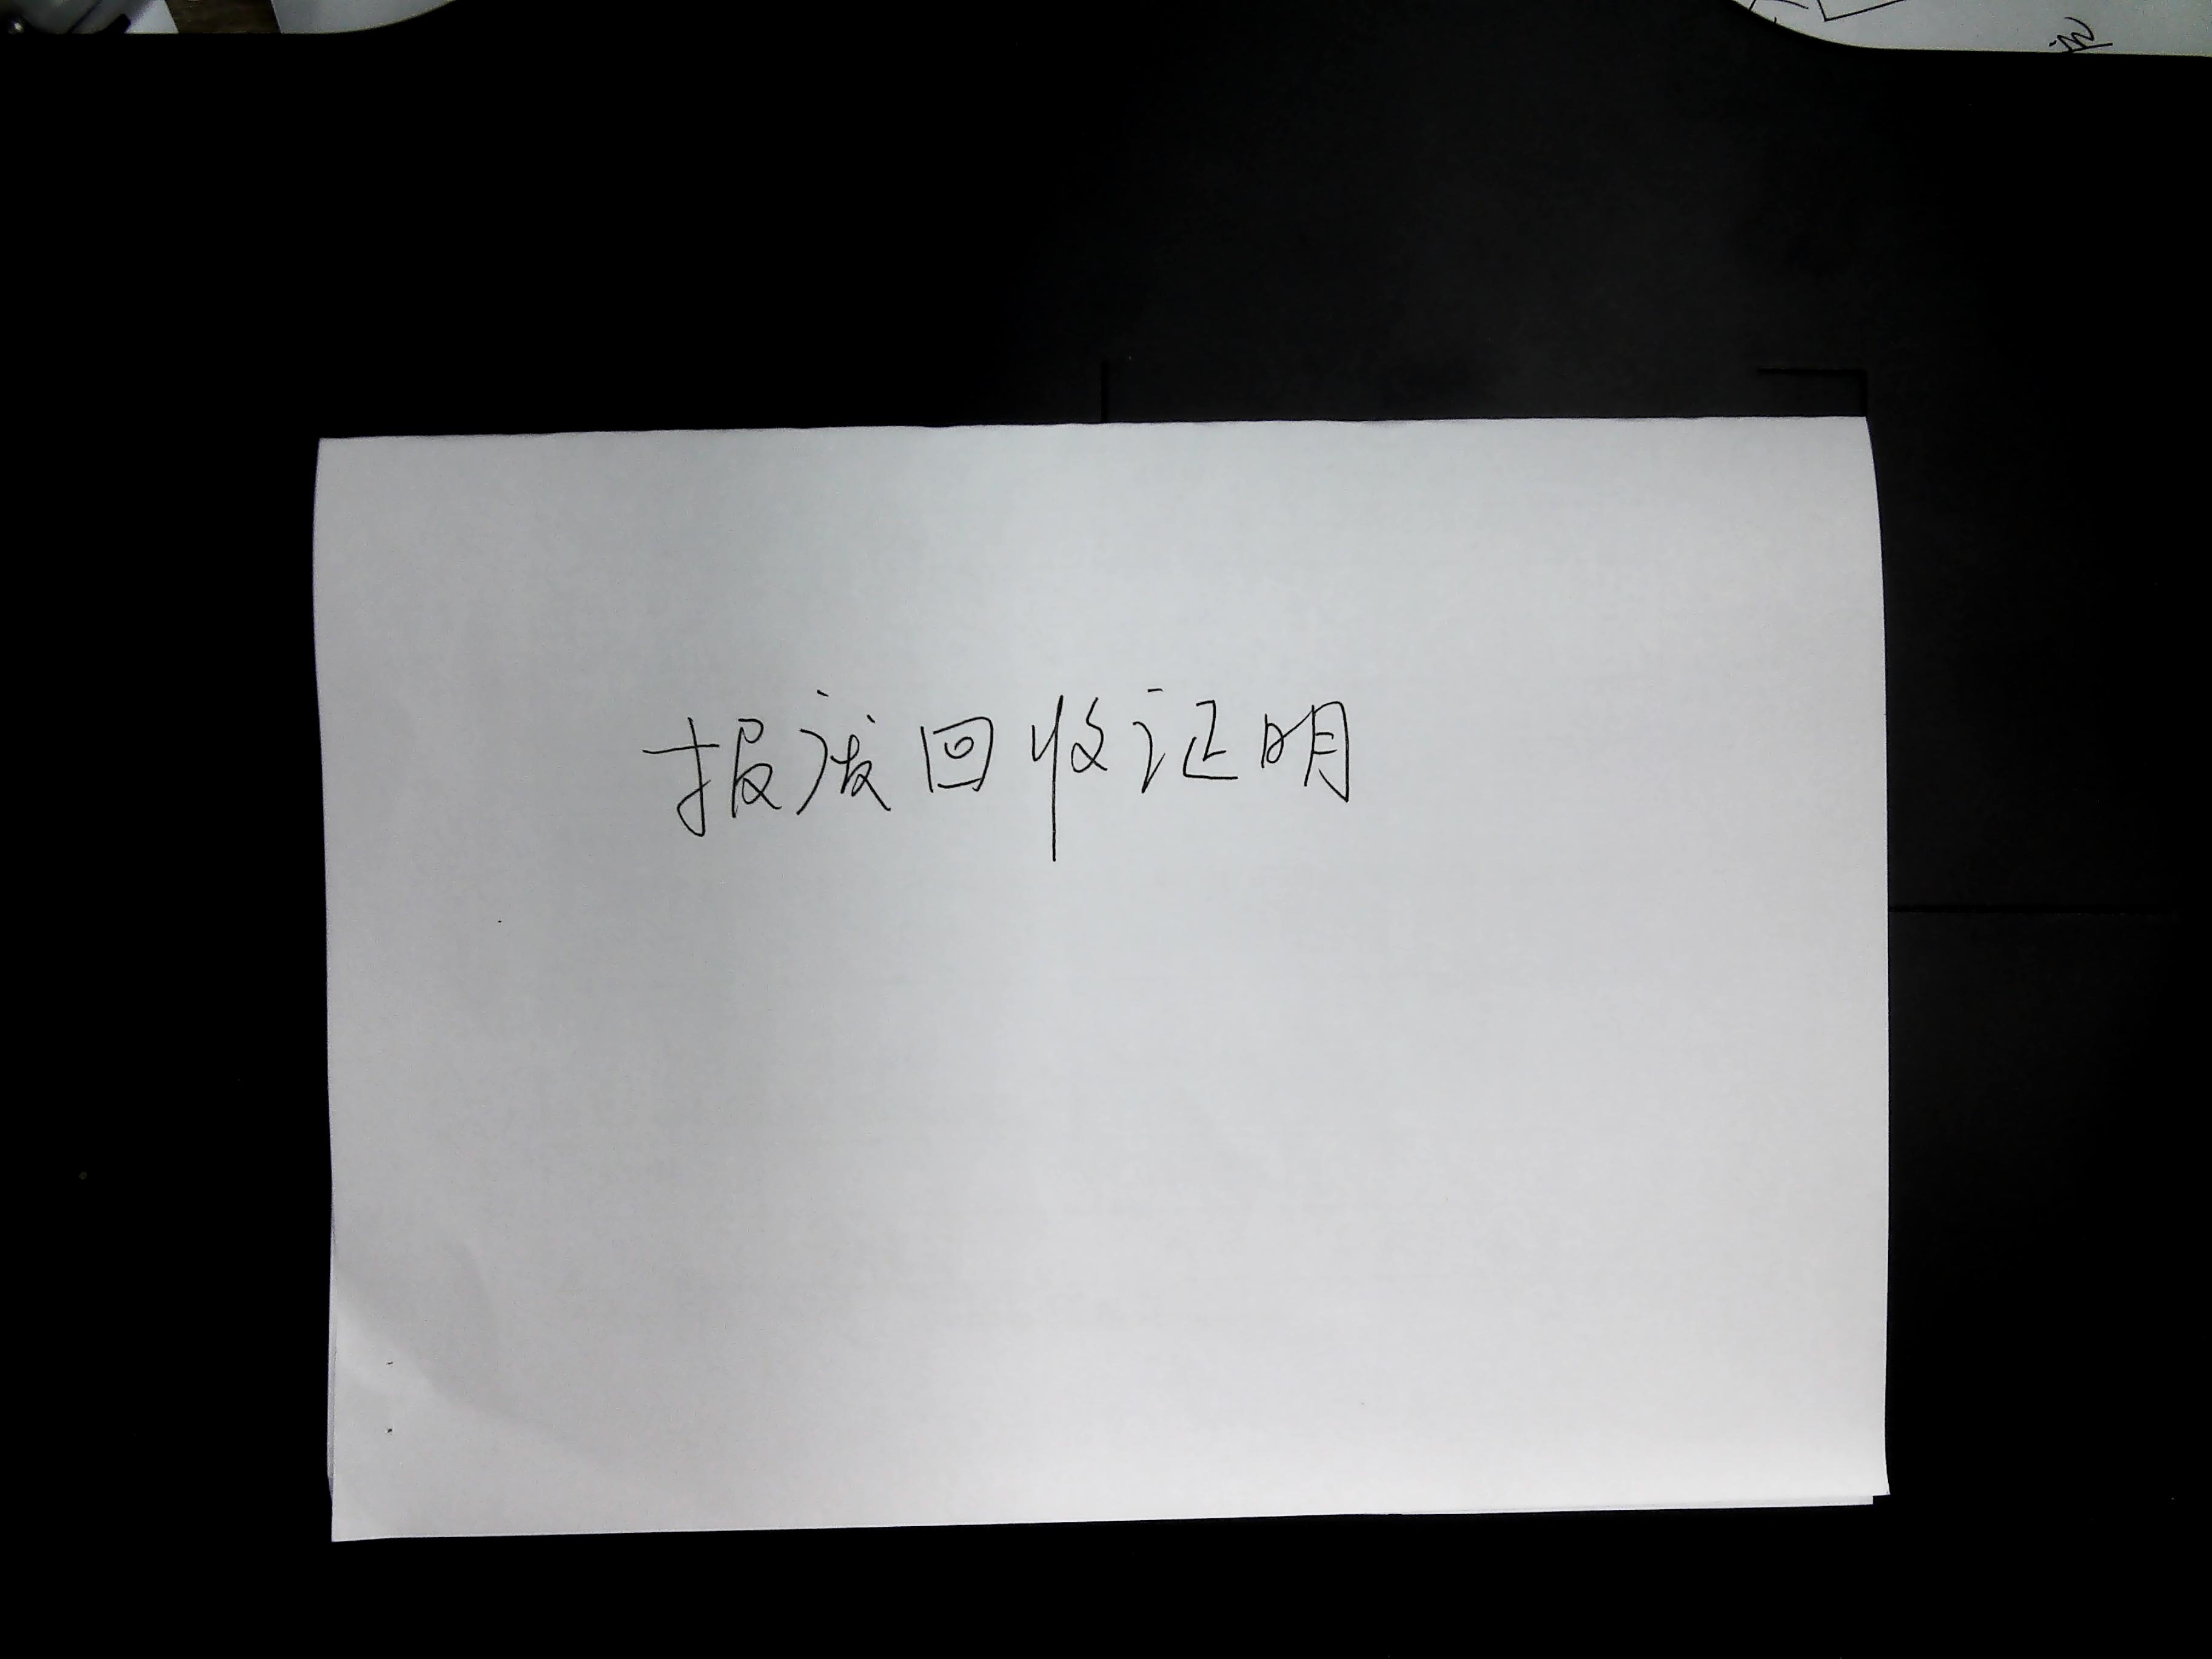 报废回收证明